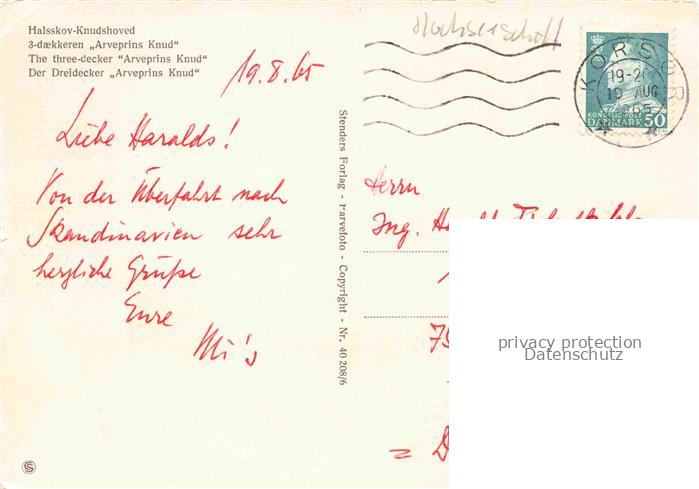 Halsskov-Knudshoved
3-dækkeren „Arveprins Knud“
The three-decker “Arveprins Knud“
Der Dreidecker „Arveprins Knud“
19.8.65
Liebe Haralds!
Von der Überfahrt nach
Skandinavien sehr
herzliche Grüße
Eure
Mi's
Stenders Forlag - Farvefoto - Copyright - Nr. 40 208/6
KORSØR
19-20
19 AUG
65
KONGELIG POST
DANMARK 50
Herrn
Ing.
privacy protection
Datenschutz